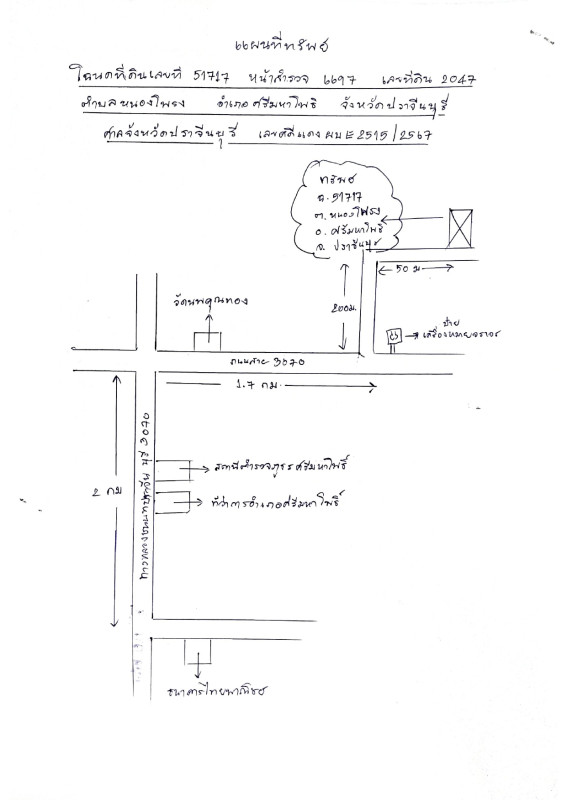 แผนที่ทรัพย์
โฉนดที่ดินเลขที่ 51717 หน้าสำรวจ 6697 เลขที่ดิน 2047
ตำบลหนองโพรง อำเภอศรีมหาโพธิ จังหวัดปราจีนบุรี
ศาลจังหวัดปราจีนบุรี เลขคดีแดง ผบE2515/2567
ทรัพย์
ฉ.51717
ต.หนองโพรง
อ.ศรีมหาโพธิ
จ.ปราจีนบุรี
50 ม
200ม.
วัดนพคุณทอง
ป้าย
เครื่องหมายจราจร
ถนนสาย 3070
1.7 กม.
2 กม
ทางหลวงชนบทปราจีนบุรี 3070
สถานีตำรวจภูธรศรีมหาโพธิ์
ที่ว่าการอำเภอศรีมหาโพธิ์
ธนาคารไทยพาณิชย์